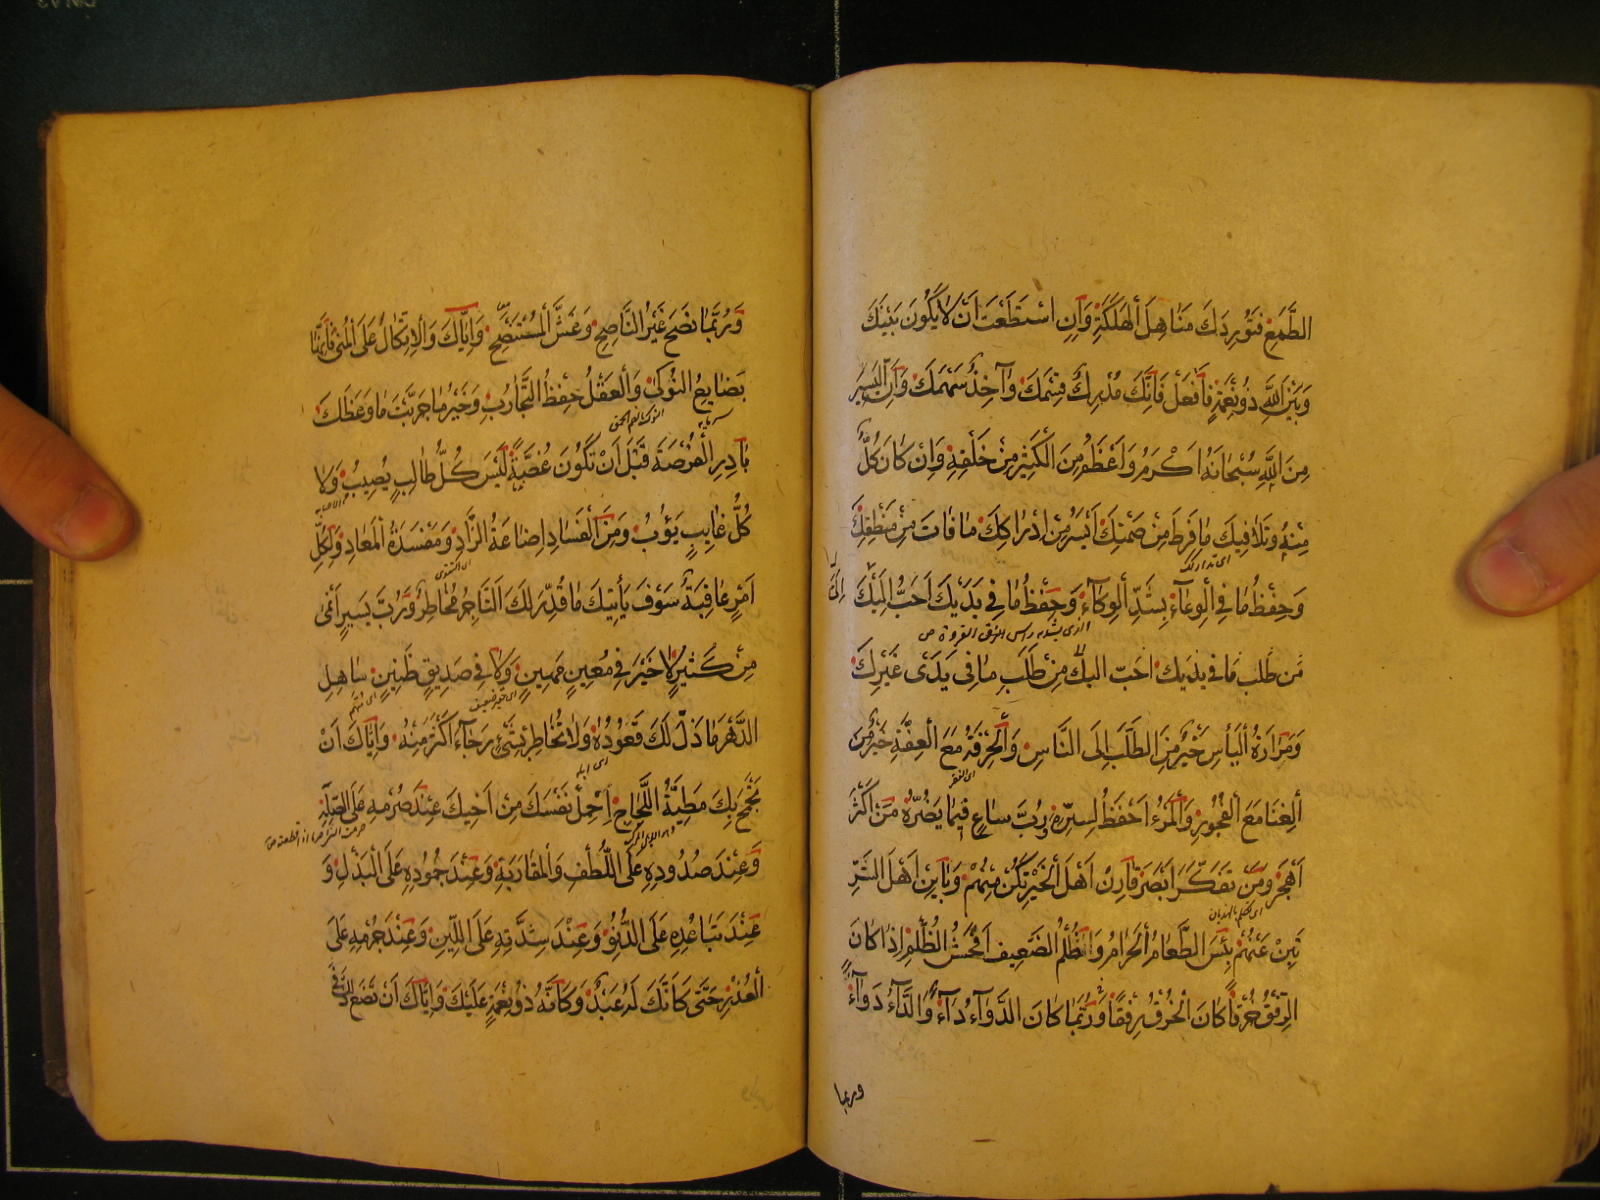 الطَّمَعِ فَتُورِدَكَ مَنَاهِلَ الْهَلَكَةِ وَاِنِ اسْتَطَعْتَ اَنْ لَا يَكُونَ بَيْنَكَ
وَبَيْنَ اللَّهِ ذُونِعْمَةٍ فَافْعَلْ فَاِنَّكَ مُدْرِكٌ قِسْمَكَ وَآخِذٌ سَهْمَكَ وَاِنَّ الْيَسِيرَ
مِنَ اللَّهِ سُبْحَانَهُ اَكْرَمُ وَاَعْظَمُ مِنَ الْكَثِيرِ مِنْ خَلْقِهِ وَاِنْ كَانَ كُلٌّ
مِنْهُ وَتَلَافِيكَ مَا فَرَطَ مِنْ صَمْتِكَ اَيْسَرُ مِنْ اِدْرَاكِكَ مَا فَاتَ مِنْ مَنْطِقِكَ
اى تداركك
وَحِفْظُ مَا فِي الْوِعَآءِ بِشَدِّ الْوِكَآءِ وَحِفْظُ مَا فِي يَدَيْكَ اَحَبُّ اِلَيْكَ
اِلَىَّ
الذى يشد به راس الزق القروة ص
مَن طلب مَا في يديك احَبّ اليك مِنْ طَلَبِ مَا فِى يَدَىْ غَيْرِكَ
وَمَرَارَةُ الْيَأْسِ خَيْرٌ مِنَ الطَّلَبِ اِلَى النَّاسِ وَالْحِرْفَةُ مَعَ الْعِفَّةِ خَيْرٌ مِنَ
الْغِنَا مَعَ الْفُجُورِ وَالْمَرْءُ اَحْفَظُ لِسِرِّهِ وَرُبَّ سَاعٍ فِيمَا يَضُرُّهُ مَنْ اَكْثَرَ
اَهْجَرَ وَمَنْ تَفَكَّرَ اَبْصَرَ قَارِنْ اَهْلَ الْخَيْرِ تَكُنْ مِنْهُمْ وَبَايِنْ اَهْلَ الشَّرِّ
اى تكلم بالهذيان
تَبِنْ عَنْهُمْ بِئْسَ الطَّعَامُ الْحَرَامُ وَظُلْمُ الضَّعِيفِ اَفْحَشُ الظُّلْمِ اِذَا كَانَ
الرِّفْقُ خُرْقًا كَانَ الْخُرْقُ رِفْقًا وَرُبَّمَا كَانَ الدَّوَآءُ دَآءً وَالدَّآءُ دَوَآءً
وربما
وَرُبَّمَا نَصَحَ غَيْرُ النَّاصِحِ وَغَشَّ الْمُسْتَنْصَحُ وَاِيَّاكَ وَالِاتِّكَالَ عَلَى الْمُنَى فَاِنَّهَا
بَضَايِعُ النَّوْكَى وَالْعَقْلُ حِفْظُ التَّجَارِبِ وَخَيْرُ مَا جَرَّبْتَ مَا وَعَظَكَ
سرمايه
النوك بالضم الحمق
بَادِرِ الْفُرْصَةَ قَبْلَ اَنْ تَكُونَ غُصَّةً لَيْسَ كُلُّ طَالِبٍ يُصِيبُ وَلَا
كُلُّ غَايِبٍ يَؤُبُ وَمِنَ الْفَسَادِ اِضَاعَةُ الزَّادِ وَمَفْسَدَةُ الْمَعَادِ وَلِكُلِّ
اى التقوى
اَمْرٍ عَاقِبَةٌ سَوْفَ يَأْتِيكَ مَا قُدِّرَ لَكَ التَّاجِرُ مُخَاطِرٌ وَرُبَّ يَسِيرٍ اَنْمَى
مِنْ كَثِيرٍ لَا خَيْرَ فِي مُعِينٍ مَهِينٍ وَلَا فِي صَدِيقٍ ظَنِينٍ سَاهِلِ
اى متهم
الدَّهْرَ مَا ذَلَّ لَكَ قَعُودُهُ وَلَا تُخَاطِرْ بِشَىْءٍ رَجَآءَ اَكْثَرَ مِنْهُ وَاِيَّاكَ اَنْ
اى ابله
تَجْمَحَ بِكَ مَطِيَّةُ اللَّجَاجِ اِحْمِلْ نَفْسَكَ مِنْ اَخِيكَ عِنْدَ صَرْمِهِ عَلَى الصِّلَةِ
وَعِنْدَ صُدُودِهِ عَلَى اللُّطْفِ وَالْمُقَارَبَةِ وَعِنْدَ جُمُودِهِ عَلَى الْبَذْلِ وَ
عِنْدَ تَبَاعُدِهِ عَلَى الدُّنُوِّ وَعِنْدَ شِدَّتِهِ عَلَى اللِّينِ وَعِنْدَ جُرْمِهِ عَلَى
الْعُذْرِ حَتَّى كَاَنَّكَ لَهُ عَبْدٌ وَكَاَنَّهُ ذُونِعْمَةٍ عَلَيْكَ وَاِيَّاكَ اَنْ تَضَعَ ذَلِكَ فِي